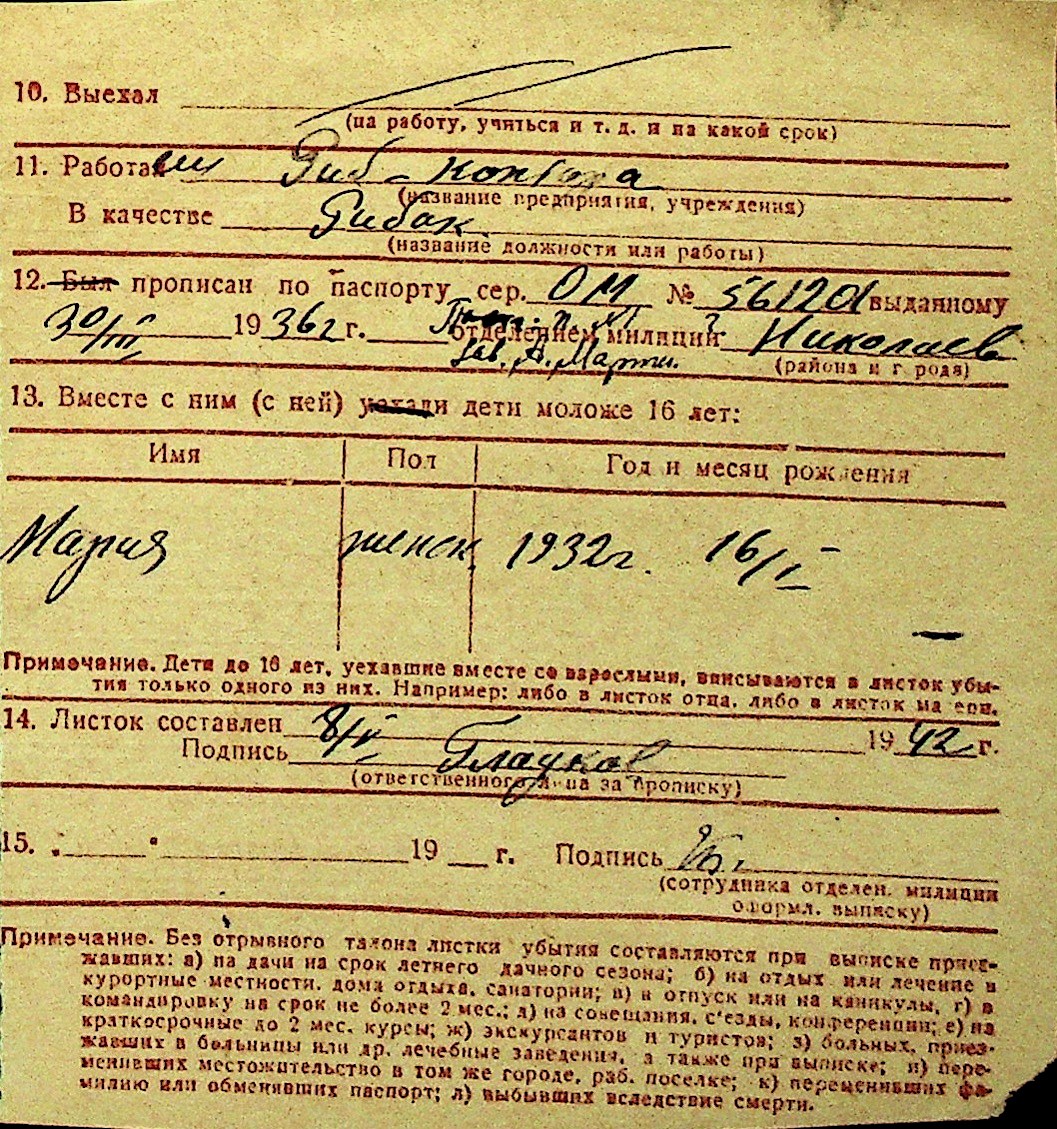 10. Выехал
(на работу, учиться и т. д. и на какой срок)
11. Работал Риб-контора
(название предприятия, учреждения)
В качестве Рибак
(название должности или работы)
12. Был прописан по паспорту сер. ОМ № 561201 выданному
30/III 1936г г. отделением милиций Николаев
зав. А. Марти. (района и г рода)
13. Вместе с ним (с ней) уехали дети моложе 16 лет:
Имя Пол Год и месяц рождения
Мария женск. 1932г. 16/I
Примечание. Дети до 16 лет, уехавшие вместе со взрослыми, вписываются в листок убы-
тия только одного из них. Например: либо в листок отца, либо в листок матери.
14. Листок составлен 8/II 1942 г.
Подпись
(ответственного лица за прописку)
15. „ “ 19 г. Подпись
(сотрудника отделен. милиции
оформл. выписку)
Примечание. Без отрывного талона листки убытия составляются при выписке приез-
жавших: а) на дачи на срок летнего дачного сезона; б) на отдых или лечение в
курортные местности, дома отдыха, санатории; в) в отпуск или на каникулы, г) в
командировку на срок не более 2 мес.; д) на совещания, с'езды, конференции; е) на
краткосрочные до 2 мес. курсы; ж) экскурсантов и туристов; з) больных, приез-
жавших в больницы или др. лечебные заведения, а также при выписке; и) пере-
менивших местожительство в том же городе, раб. поселке; к) переменивших фа-
милию или обменявших паспорт; л) выбывших вследствие смерти.